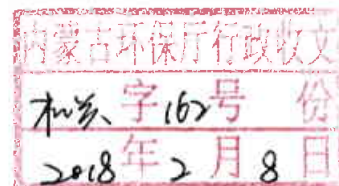 内蒙古环保厅行政收文
字162号 份
2018年2月8日